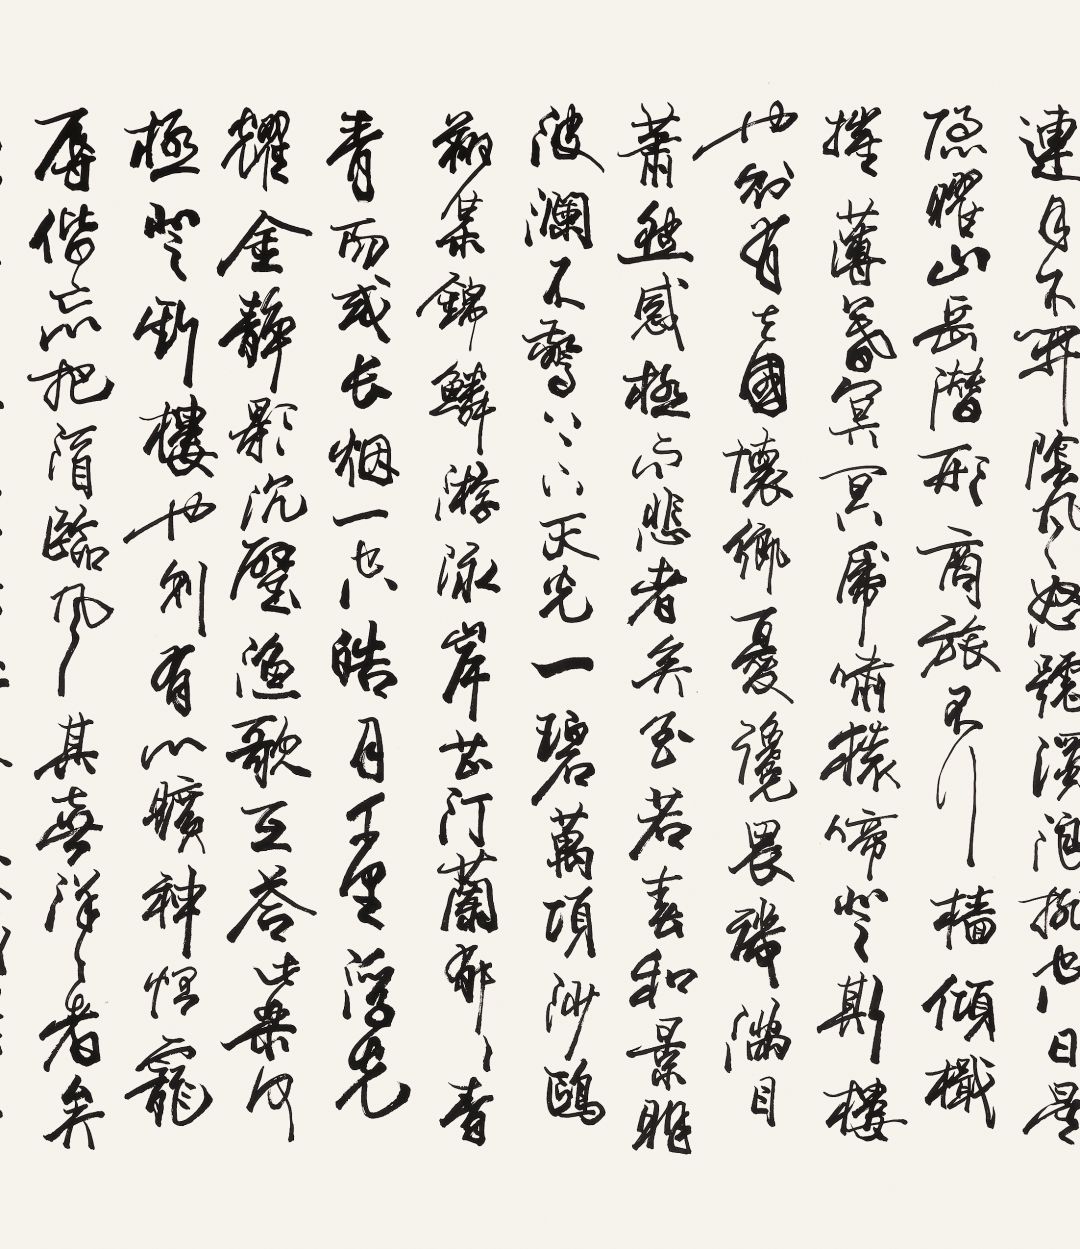 連月不開陰風怒號濁浪排空日星
隱曜山岳潛形商旅不行檣傾檝
摧薄暮冥冥虎嘯猿啼登斯樓
也則有去國懷鄉憂讒畏譏滿目
蕭然感極而悲者矣至若春和景明
波瀾不驚上下天光一碧萬頃沙鷗
翔集錦鱗游泳岸芷汀蘭郁々青
青而或长烟一空皓月千里浮光
耀金靜影沉璧漁歌互答此樂何
極登斯樓也則有心曠神怡寵
辱偕忘把酒臨風其喜洋々者矣